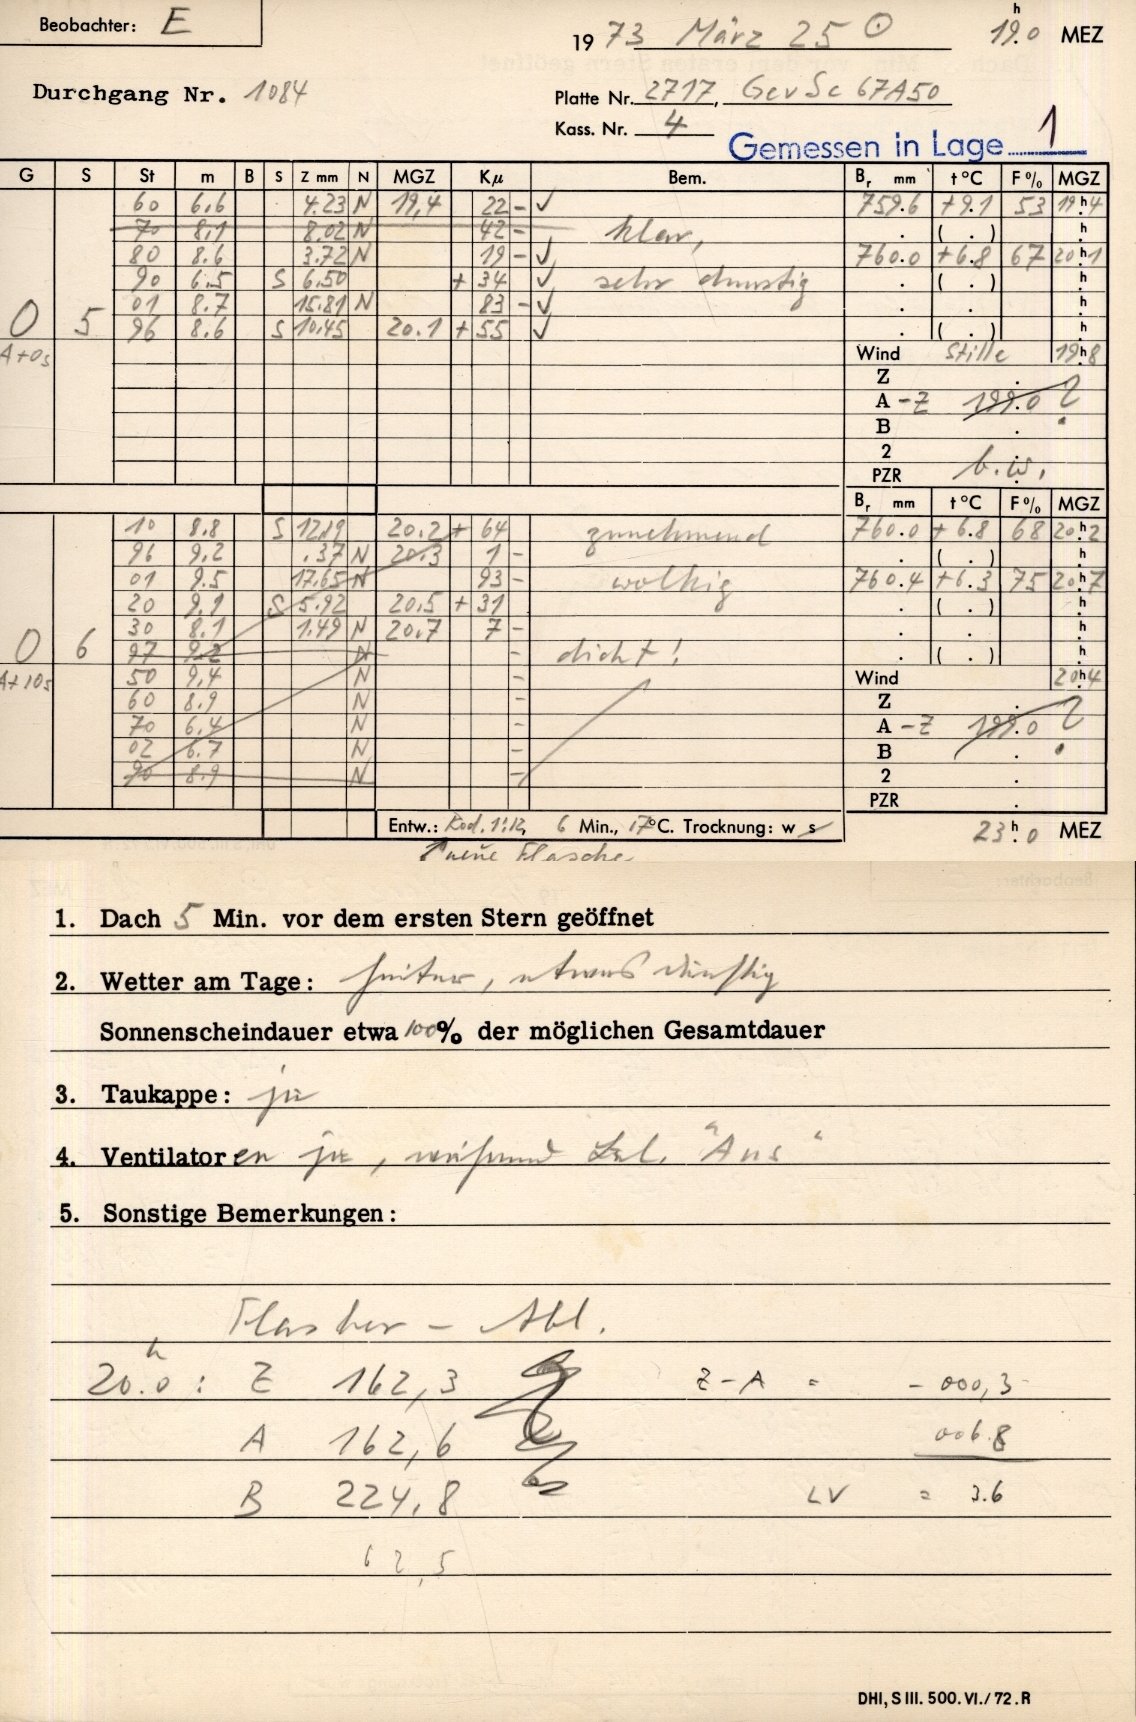 Beobachter: E
1973 März 25 ☉ 19h.0 MEZ
Durchgang Nr. 1084
Platte Nr. 2717, GevSc 67A50
Kass. Nr. 4
Gemessen in Lage 1
G S St m B S Z mm N MGZ Kμ Bem. Br mm t°C F% MGZ
60 6.6 4.23 N 19,4 22 - ✓ 759.6 +9.1 53 19h4
70 8.1 8.02 N 42 - klar, . ( . ) h
80 8.6 3.72 N 19 - ✓ 760.0 +6.8 67 20h1
90 6.5 S 6.50 + 34 ✓ sehr dunstig . ( . ) h
01 8.7 15.81 N 83 - ✓ . . h
0 5 96 8.6 S 10.45 20.1 + 55 ✓ . ( . ) h
A+0s Wind Stille 19h8
Z .
A - Z 199.0 ?
B .
2 .
PZR b.w.
Br mm t°C F% MGZ
10 8.8 S 12.19 20.2 + 64 zunehmend 760.0 +6.8 68 20h2
96 9.2 .37 N 20.3 1 - . ( . ) h
01 9.5 17.65 N 93 - wolkig 760.4 +6.3 75 20h7
20 9.1 S 5.92 20.5 + 31 . ( . ) h
30 8.1 1.49 N 20.7 7 - . . h
0 6 97 9.2 N - dicht! . ( . ) h
A+10s 50 9.4 N - Wind 20h4
60 8.9 N - Z .
70 6.4 N - A - Z 199.0 ?
02 6.7 N - B .
90 8.9 N - 2 .
PZR .
Entw.: Kod. 1:12, 6 Min., 17°C. Trocknung: w s 23h.0 MEZ
↑ neue Flasche
1. Dach 5 Min. vor dem ersten Stern geöffnet
2. Wetter am Tage: heiter, etwas dunstig
Sonnenscheindauer etwa 100% der möglichen Gesamtdauer
3. Taukappe: ja
4. Ventilatoren ja, während "Aus"
5. Sonstige Bemerkungen:
Flasher - Abl.
20h.0 : Z 162,3 Z-A = - 000,3
A 162,6 006.8
B 224,8 LV = 3.6
62,5
DHI, S III. 500. VI./72. R